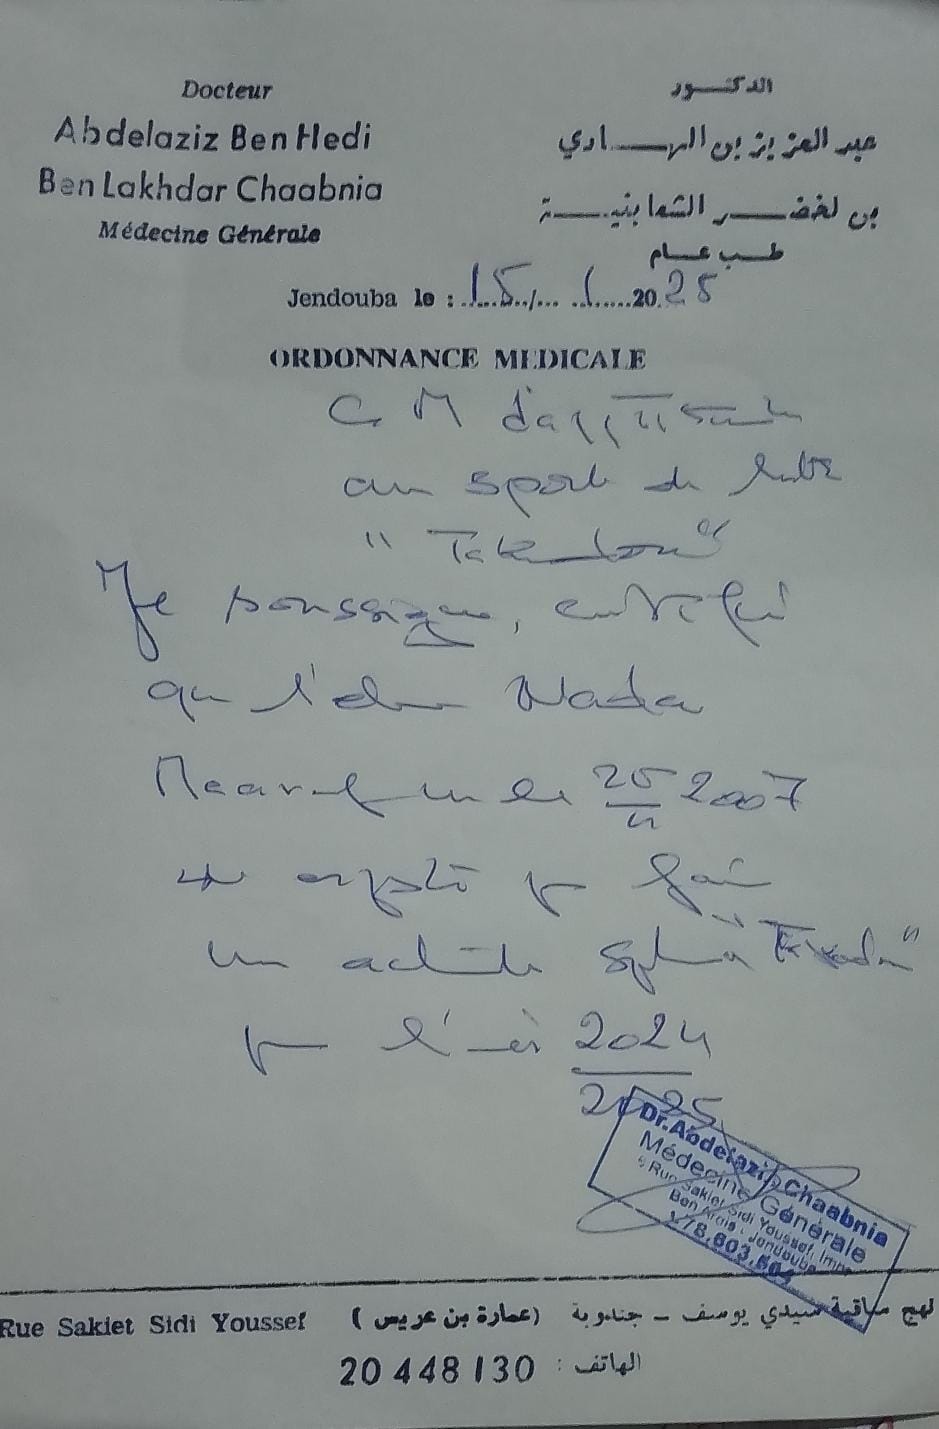 Docteur
Abdelaziz Ben Hedi
Ben Lakhdar Chaabnia
Médecine Générale
الدكتور
عبد العزيز بن الهادي
بن لخضر الشعابنية
طب عام
Jendouba le : 15/ 1 2025
ORDONNANCE MEDICALE
C M d'aptitude
au sport de lutte
"
Je soussigné, certifie
que l'élève Nada
25/11 2007
un activité
pour l' 2024
2025
Dr. Abdelaziz Chaabnia
Médecine Générale
Rue Sakiet Sidi Youssef, Imm
Ben Arais - Jendouba
78.603.604
Rue Sakiet Sidi Youssef نهج ساقية سيدي يوسف - جندوبة (عمارة بن عريس)
الهاتف : 20 448 130